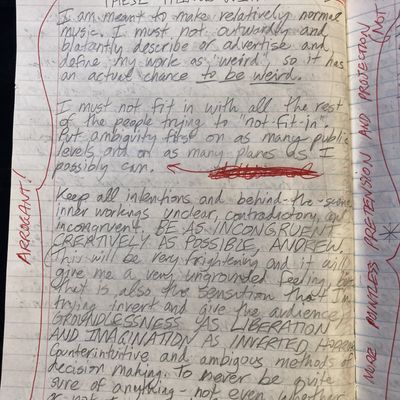 THESE THINGS
I am meant to make relatively normal
music. I must not outwardly and
blatantly describe or advertise and
define my work as "weird", so it has
an actual chance to be weird.
I must not fit in with all the rest
of the people trying to "not-fit-in".
Put ambiguity first on as many public
levels and on as many planes as I
possibly can.
Keep all intentions and behind-the-scene
inner workings unclear, contradictory, and
incongruent. BE AS INCONGRUENT
CREATIVELY AS POSSIBLE, ANDREW.
This will be very frightening and it will
give me a very ungrounded feeling
that is also the sensation that I'm
trying invert and give the audience
GROUNDLESSNESS AS LIBERATION
AND IMAGINATION AS INVERTED
Counterintuitive and ambigous methods of
decision making. To never be quite
sure of anything - not even whether
or not
ARROGANT!
MORE POINTLESS PRETENSION AND PROJECTION
(NOT